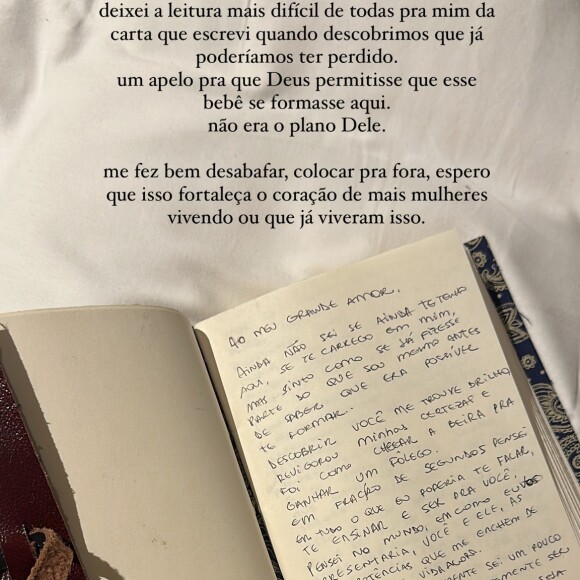 deixei a leitura mais difícil de todas pra mim da
carta que escrevi quando descobrimos que já
poderíamos ter perdido.
um apelo pra que Deus permitisse que esse
bebê se formasse aqui.
não era o plano Dele.
me fez bem desabafar, colocar pra fora, espero
que isso fortaleça o coração de mais mulheres
vivendo ou que já viveram isso.
AO MEU GRANDE AMOR,
AINDA NÃO SEI SE AINDA TE TENHO
AQUI, SE TE CARREGO EM MIM,
MAS SINTO COMO SE JÁ FIZESSE
PARTE DO QUE SOU MESMO ANTES
DE SABER QUE ERA POSSÍVEL
TE FORMAR.
DESCOBRIR VOCÊ ME TROUXE BRILHO,
REVIGOROU MINHAS CERTEZAS E
FOI COMO CHEGAR A BEIRA PRA
GANHAR UM FÔLEGO.
EM FRAÇÃO DE SEGUNDOS PENSEI
EM TUDO O QUE EU PODERIA TE FALAR,
TE ENSINAR E SER PRA VOCÊ,
PENSEI NO MUNDO, EM COMO EU
APRESENTARIA, VOCÊ E ELE, AS
POTÊNCIAS QUE ME ENCHEM DE
SEI UM POUCO